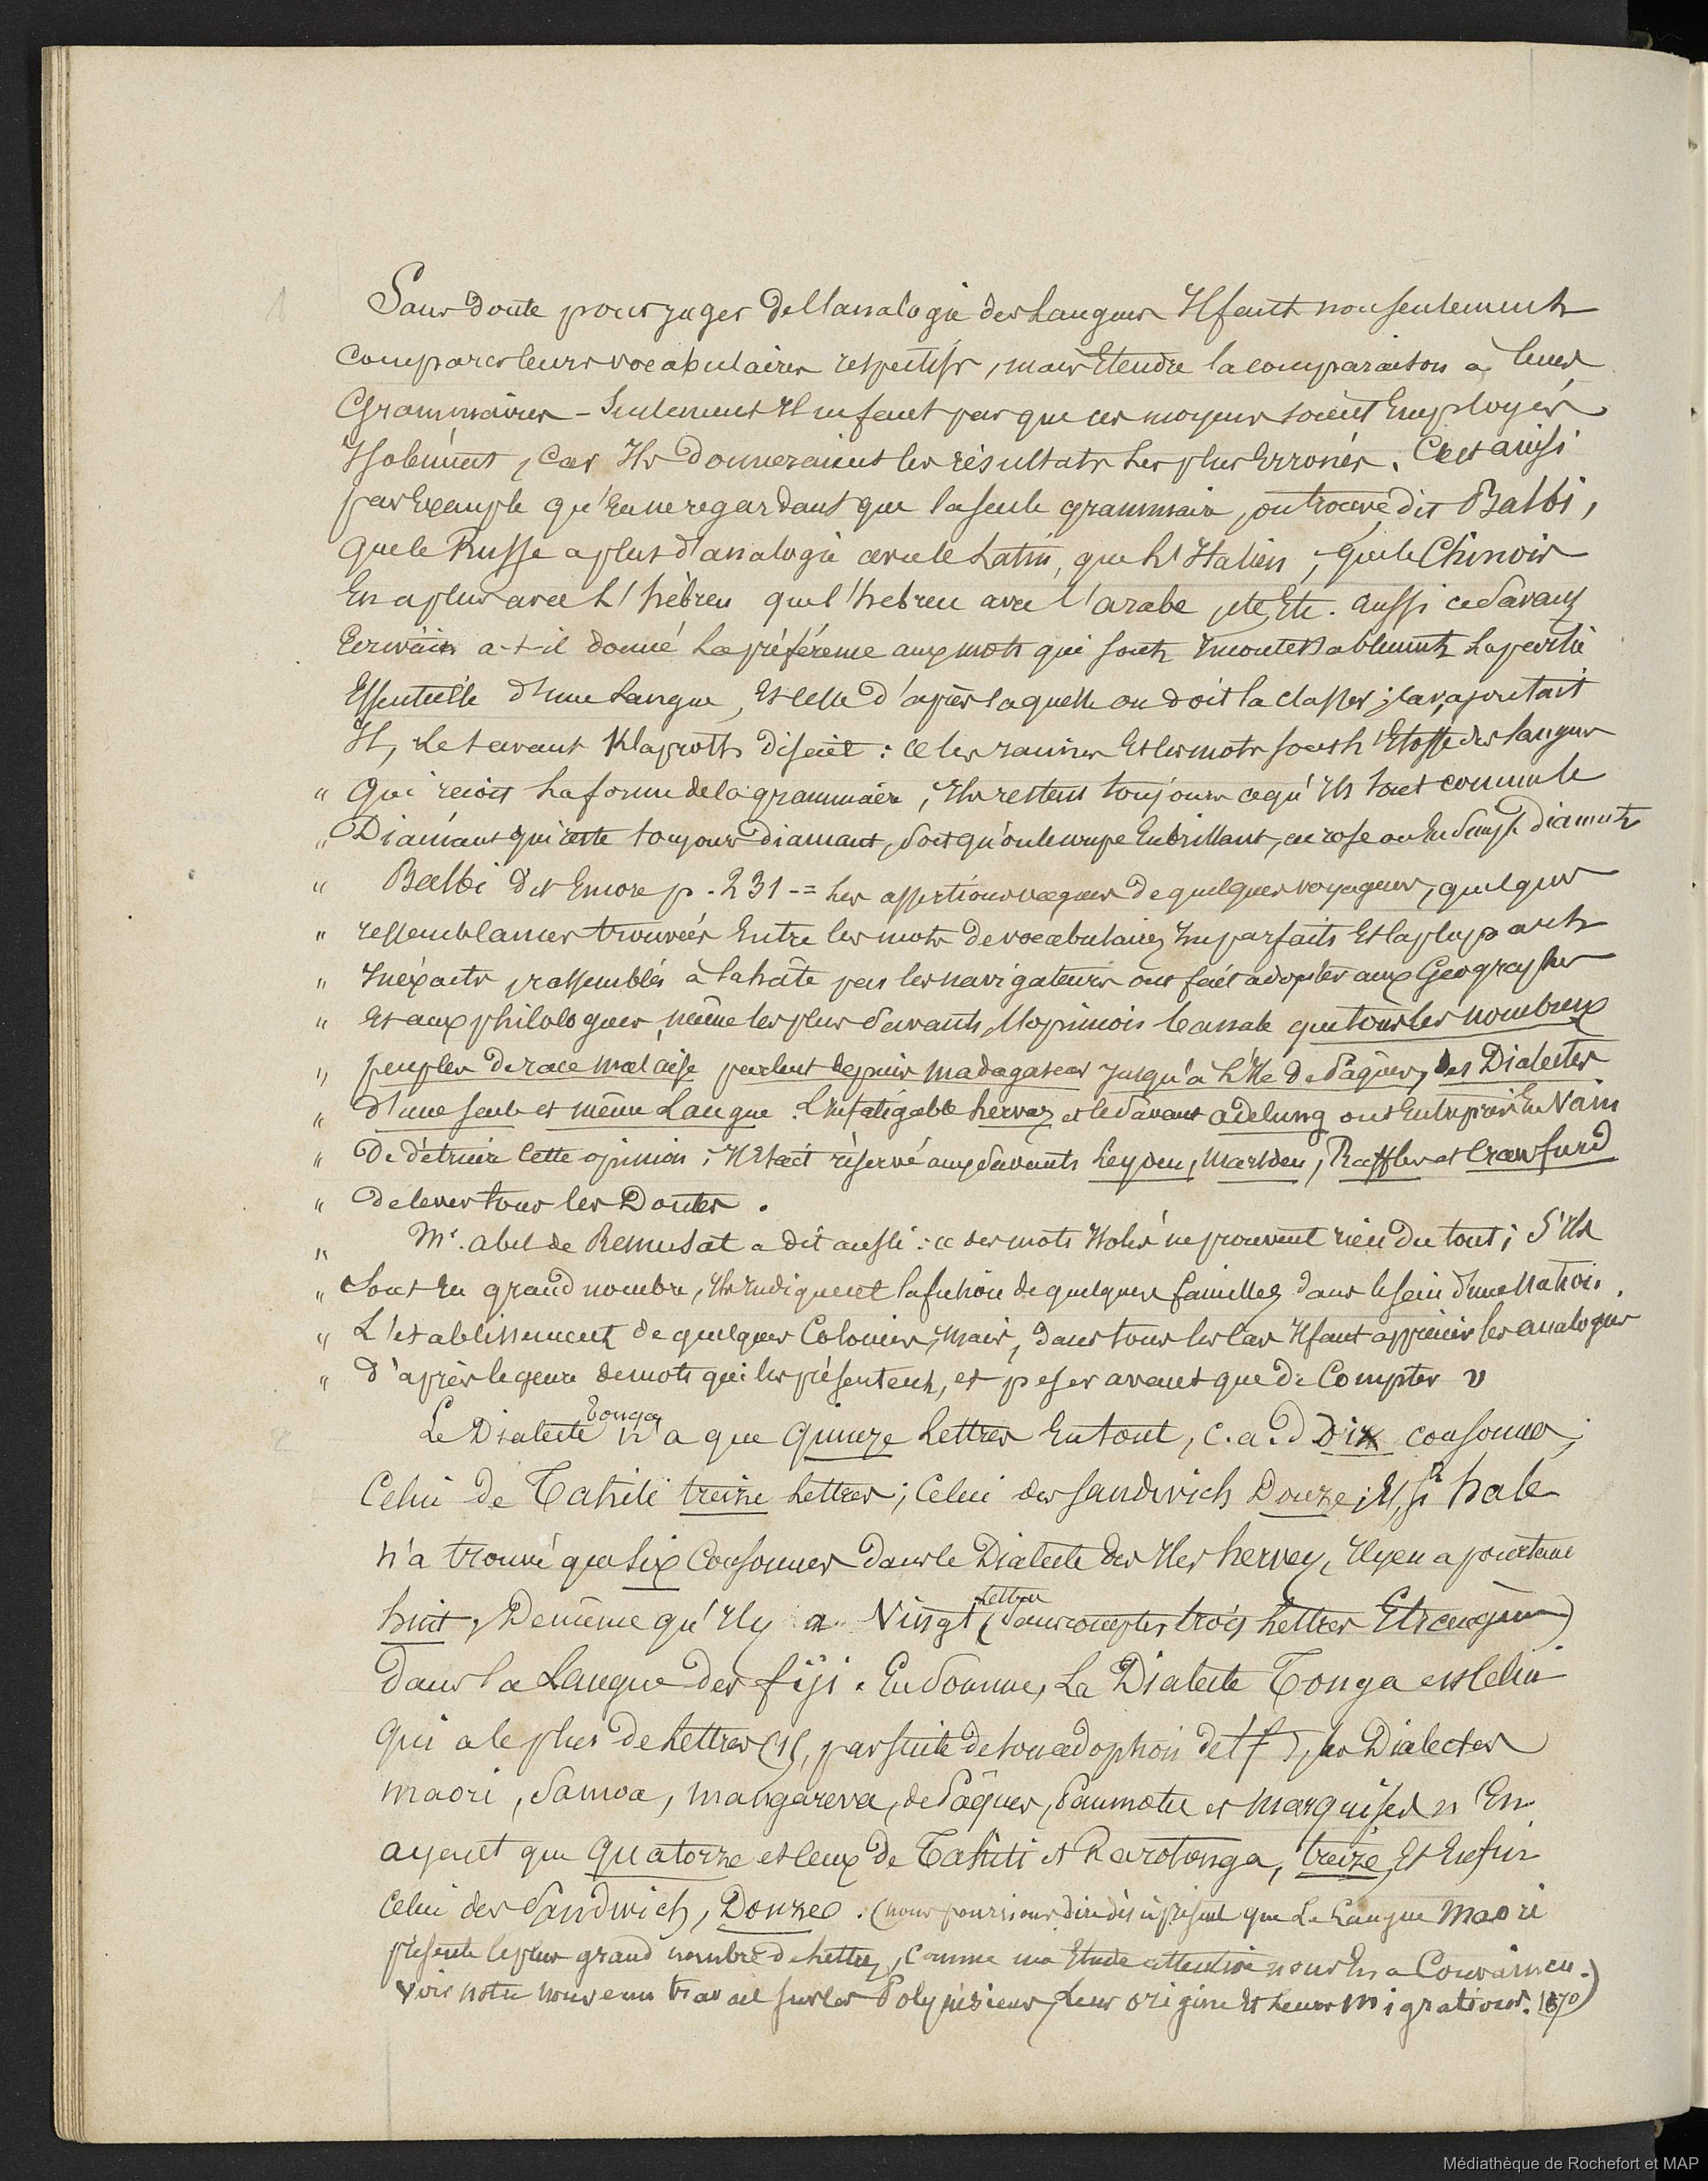 1
Sans doute pour juger de l'analogie des Langues Il faut non seulement
Comparer leurs vocabulaires respectifs, mais Etendre la comparaison à leurs
Grammaires - Seulement Il ne faut pas que ces moyens soient Employés
Isolément, Car Ils donneraient les résultats Les plus Erronés. C'est ainsi
par Exemple qu'En ne regardant que la seule grammaire, on trouve, dit Balbi,
que le Russe a plus d'analogie avec le Latin, que L'Italien, que le Chinois
En a plus avec L'hébreu que l'hebreu avec l'arabe, etc Etc. aussi ce Savant
Ecrivain a-t-il donné La préférence aux mots qui sont Incontestablement La partie
Essentielle d'une Langue, Et celle d'après laquelle on doit la classer; Car, ajoutait
Il, Le Savant Klaproth disait : « les racines Et les mots sont L'Etoffe des langues
" Qui reçoit La forme de la grammaire, Ils restent toujours ce qu'Ils sont comme le
" Diamant qui reste toujours diamant, Soit qu'on le coupe En brillant, en rose ou En Simple diamant
" Balbi dit Encore p. 231 -= Les assertions vagues de quelques voyageurs, quelques
" ressemblances trouvées Entre les mots de vocabulaires Imparfaits Et la plupart
" Inéxacts, rassemblés à la hâte par les navigateurs ont fait adopter aux Geographes
" Et aux philologues, même les plus Savants, l'opinion banale que tous les nombreux
" peuples de race malaise parlent depuis Madagascar jusqu'à L'Ile de Pâques, des Dialectes
" d'une seule et même Langue. L'Infatigable hervaz et le Savant adelung ont Entrepris En Vain
" De détruire Cette opinion; Il Etait réservé aux Savants Leyden, Marsden, Raffles et Crawfurd
" de lever tous les Doutes.
" Mr. abel de Remusat a dit aussi : « des mots Isolés ne prouvent rien du tout; S'Ils
" Sont En grand nombre, Ils Indiquent la fusion de quelques familles dans le sein d'une Nation.
" L'établissement de quelques Colonies, Mais, dans tous les Cas Il faut apprécier les analogies
" d'après le genre de mots qui les présentent, et peser avant que de Compter »
Tonga
2 Le Dialecte n'a que Quinze Lettres En tout, c.a.d Dix consonnes;
Celui de Tahiti treize Lettres; Celui des Sandwich Douze; Et, si hale
n'a trouvé que Six Consonnes dans le Dialecte des Iles hervey, Il y en a pourtant
huit, De même qu'Il y a Vingt Lettres (Sans compter trois Lettres Etrangères)
dans la Langue des fiji. En Somme, Le Dialecte Tonga est celui
Qui a le plus de Lettres (15, par suite de son adoption de l'f), les Dialectes
maori, Samoa, mangareva, de Pâques, Paumotu et Marquises n'En
ayant que Quatorze et ceux de Tahiti et Rarotonga, treize, Et Enfin
celui des Sandwich, Douze. (nous pourrions dire dès à présent que La Langue Maori
présente le plus grand nombre de Lettres, Comme une Etude attentive nous En a Convaincu.
Voir notre nouveau travail sur les Polynésiens, Leur origine Et Leurs Migrations. 1870)
Médiathèque de Rochefort et MAP